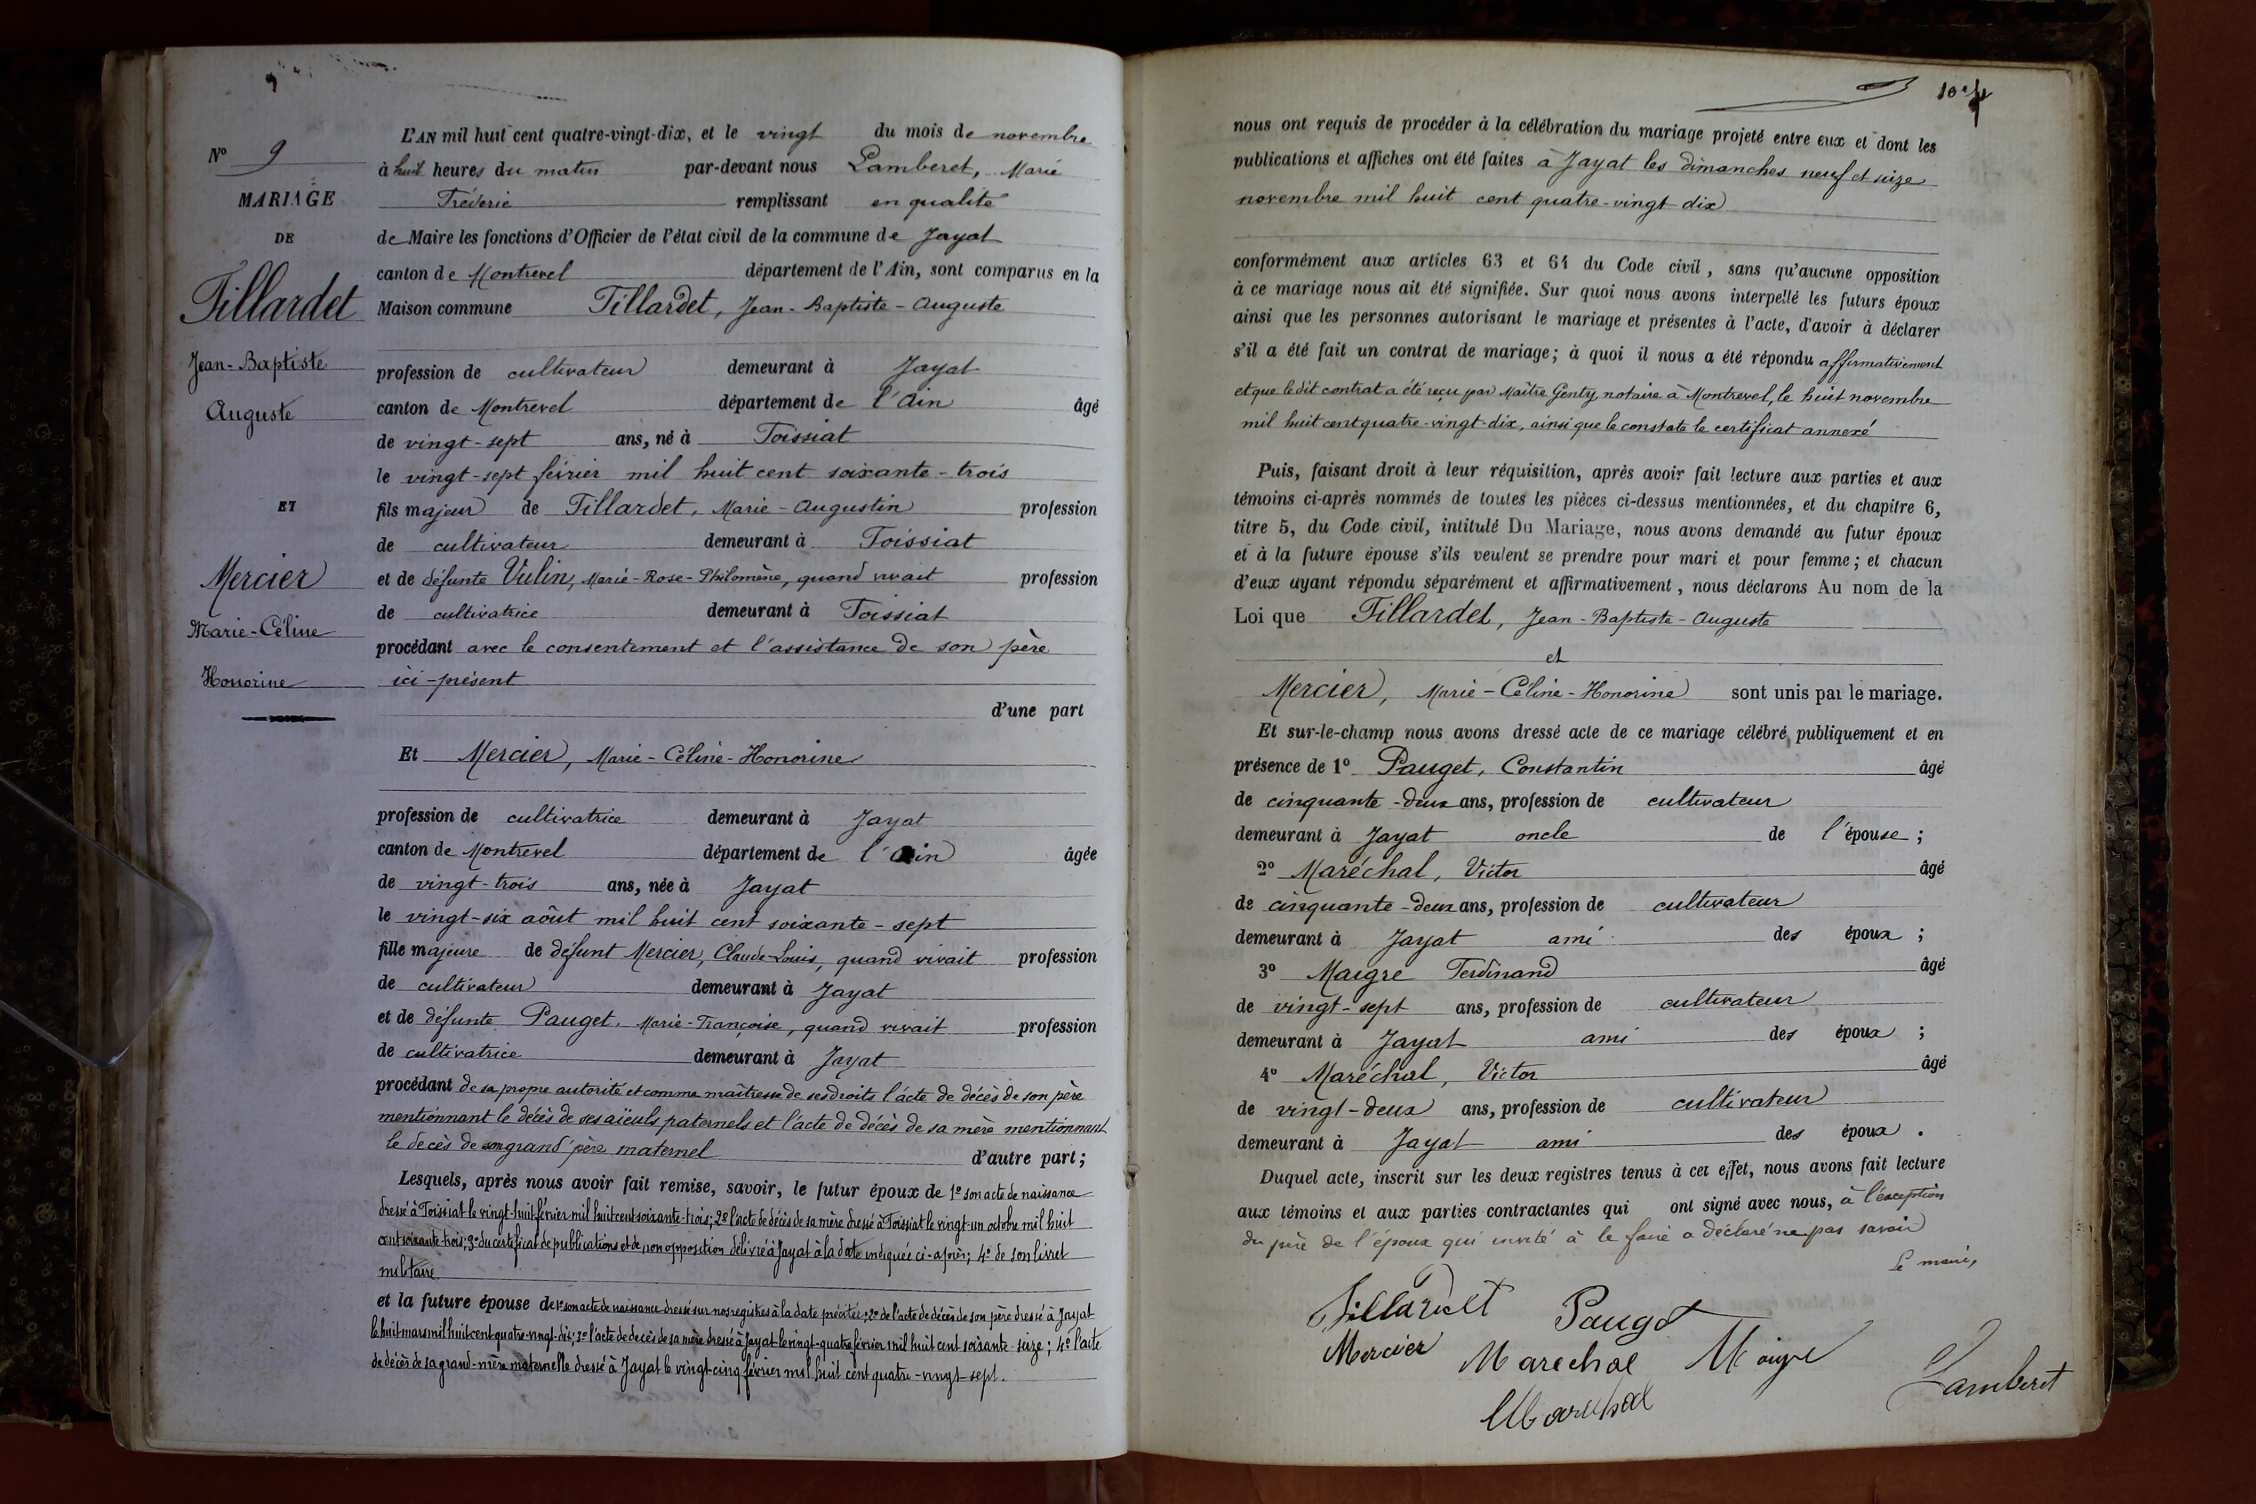 9
L'AN mil huit cent quatre-vingt-dix, et le vingt du mois de novembre
N° 9
à huit heures du matin par-devant nous Lamberet, Marie
MARIAGE
Fréderic remplissant en qualité
DE
de Maire les fonctions d'Officier de l'état civil de la commune de Jayat
canton de Montrevel département de l'Ain, sont comparus en la
Tillardet
Maison commune Tillardet, Jean-Baptiste-Auguste
Jean-Baptiste
profession de cultivateur demeurant à Jayat
Auguste
canton de Montrevel département de l'Ain âgé
de vingt-sept ans, né à Foissiat
le vingt-sept février mil huit cent soixante-trois
ET
fils majeur de Tillardet, Marie-Augustin profession
de cultivateur demeurant à Foissiat
Mercier
et de défunte Vulin, Marie-Rose-Philomène, quand vivait profession
de cultivatrice demeurant à Foissiat
Marie-Céline
procédant avec le consentement et l'assistance de son père
Honorine
ici-présent
d'une part
Et Mercier, Marie-Céline-Honorine
profession de cultivatrice demeurant à Jayat
canton de Montrevel département de l'Ain âgée
de vingt-trois ans, née à Jayat
le vingt-six aôut mil huit cent soixante-sept
fille majeure de défunt Mercier, Claude-Louis, quand vivait profession
de cultivateur demeurant à Jayat
et de défunte Pauget, Marie-Françoise, quand vivait profession
de cultivatrice demeurant à Jayat
procédant de sa propre autorité et comme maîtresse de ses droits l'acte de décès de son père
mentionnant le décès de ses aïeuls paternels et l'acte de décès de sa mère mentionnant
le decès de son grand père maternel d'autre part;
Lesquels, après nous avoir fait remise, savoir, le futur époux de 1° son acte de naissance
dressé à Foissiat le vingt-huit février mil huit cent soixante-trois; 2° l'acte de décès de sa mère dressé à Foissiat le vingt-un octobre mil huit
cent soixante-trois; 3° du certificat de publications et de non opposition délivré à Jayat à la date indiquée ci-après; 4° de son livret
militaire
et la future épouse de 1° son acte de naissance dressé sur nos registres à la date précitée; 2° de l'acte de décès de son père dressé à Jayat
le huit mars mil huit cent quatre-vingt-dix; 3° l'acte de decès de sa mère dressé à Jayat le vingt-quatre février mil huit cent soixante-seize; 4° l'acte
de décès de sa grand-mère maternelle dressé à Jayat le vingt-cinq février mil huit cent quatre-vingt-sept.
nous ont requis de procéder à la célébration du mariage projeté entre eux et dont les
publications et affiches ont été faites à Jayat les dimanches neuf et seize
novembre mil huit cent quatre-vingt dix
conformément aux articles 63 et 64 du Code civil, sans qu'aucune opposition
à ce mariage nous ait été signifiée. Sur quoi nous avons interpellé les futurs époux
ainsi que les personnes autorisant le mariage et présentes à l'acte, d'avoir à déclarer
s'il a été fait un contrat de mariage; à quoi il nous a été répondu affirmativement
et que ledit contrat a été reçu par Maître Genty, notaire à Montrevel, le huit novembre
mil huit cent quatre-vingt-dix, ainsi que le constate le certificat annexé
Puis, faisant droit à leur réquisition, après avoir fait lecture aux parties et aux
témoins ci-après nommés de toutes les pièces ci-dessus mentionnées, et du chapitre 6,
titre 5, du Code civil, intitulé Du Mariage, nous avons demandé au futur époux
et à la future épouse s'ils veulent se prendre pour mari et pour femme; et chacun
d'eux ayant répondu séparément et affirmativement, nous déclarons Au nom de la
Loi que Tillardet, Jean-Baptiste-Auguste
et
Mercier, Marie-Céline-Honorine sont unis par le mariage.
Et sur-le-champ nous avons dressé acte de ce mariage célébré publiquement et en
présence de 1° Pauget, Constantin âgé
de cinquante-deux ans, profession de cultivateur
demeurant à Jayat oncle de l'épouse;
2° Maréchal, Victor âgé
de cinquante-deux ans, profession de cultivateur
demeurant à Jayat ami des époux;
3° Maigre Ferdinand âgé
de vingt-sept ans, profession de cultivateur
demeurant à Jayat ami des époux;
4° Maréchal, Victor âgé
de vingt-deux ans, profession de cultivateur
demeurant à Jayat ami des époux.
Duquel acte, inscrit sur les deux registres tenus à cet effet, nous avons fait lecture
aux témoins et aux parties contractantes qui ont signé avec nous, à l'éxception
du père de l'époux qui invité à le faire a déclaré ne pas savoir
Le maire,
Tillardet Pauget
Mercier Marechal Maigre
Marechal Lamberet